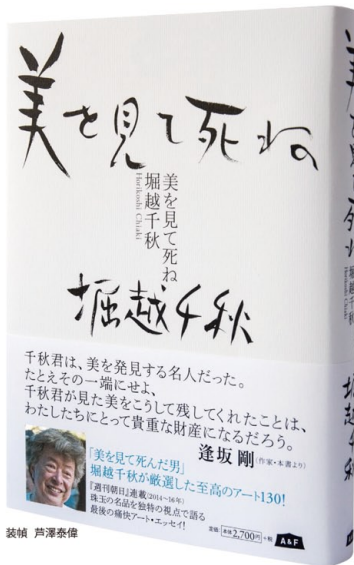 美を見て死ね
美を見て死ね
堀越千秋
Horikoshi Chiaki
堀越千秋
千秋君は、美を発見する名人だった。
たとえその一端にせよ、
千秋君が見た美をこうして残してくれたことは、
わたしたちにとって貴重な財産になるだろう。
逢坂 剛(作家・本書より)
「美を見て死んだ男」
堀越千秋が厳選した至高のアート130!
『週刊朝日』連載(2014〜16年)
珠玉の名品を独特の視点で語る
最後の痛快アート・エッセイ!
定価:本体2,700円+税
A&F
美を見て死ね
堀越千秋
Horikoshi Chiaki
堀越千秋
装幀 芦澤泰偉